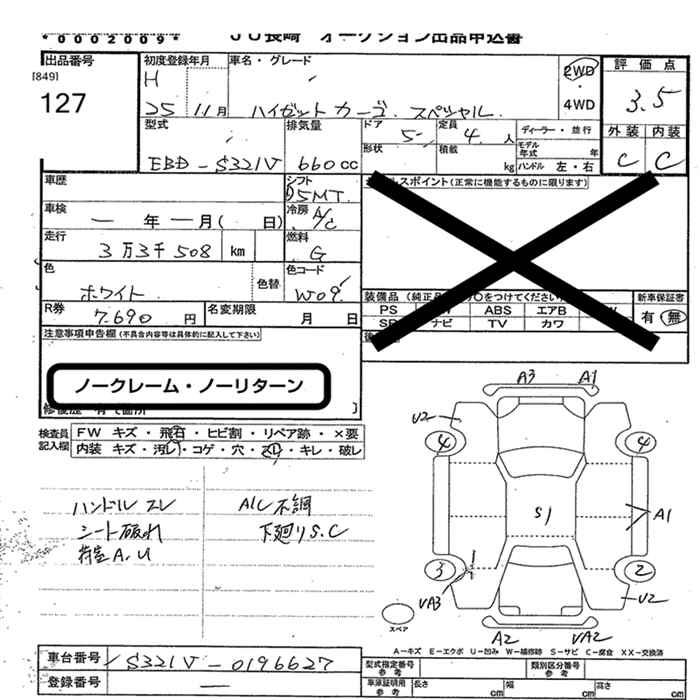 *0002009*
JU長崎 オークション出品申込書
出品番号
[849]
127
初度登録年月
H
25 11月
車名・グレード
ハイゼットカーゴ スペシャル
2WD
・
4WD
評価点
3.5
外装 内装
C C
型式
EBD-S321V
排気量
660cc
ドア
5
定員
4 人
形状
積載
kg
ディーラー・並行
モデル年式 年
ハンドル 左・右
車歴
シフト
5MT
スポイント(正常に機能するものに限ります)
車検
― 年 ― 月( 日)
冷房
A/C
走行
3万3千508 km
燃料
G
色
ホワイト
色替
色コード
W09
R券
7.690 円
名変期限
月 日
装備品(純正
をつけてください
PS ABS エアB
ナビ TV カワ
新車保証書
有 無
注意事項申告欄(不具合内容等は具体的に記入して下さい)
ノークレーム・ノーリターン
検査員
記入欄
FW キズ・飛石・ヒビ割・リペア跡・×要
内装 キズ・汚レ・コゲ・穴・スレ・キレ・破レ
ハンドルスレ
シート破れ
荷室A.U
AC不調
下廻りS.C
A3 A1
U2
4 4
S1
A1
3 2
UA3
U2
A2 UA2
スペア
A-キズ E-エクボ U-凹み W-補修跡 S-サビ C-腐食 XX-交換済
車台番号
S321V-0196627
登録番号
―
型式指定番号
参考
類別区分番号
参考
車庫証明用
参考
長さ cm
幅 cm
高さ cm